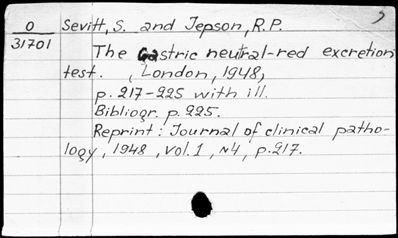 O Sevitt, S. and Jepson, R.P.
31701
The Gastric neutral-red excretion
test. , London, 1948,
p. 217-225 with ill.
Bibliogr. p. 225.
Reprint: Journal of clinical patho-
logy, 1948, vol. 1, N4, p. 217.